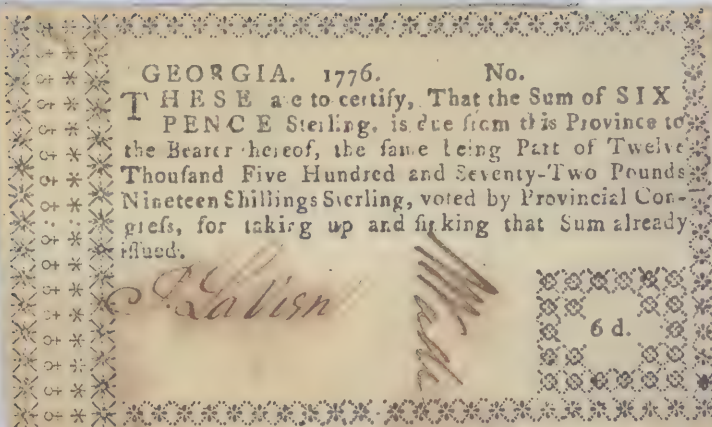 GEORGIA. 1776. No.
THESE are to certify, That the Sum of SIX
PENCE Sterling, is due from this Province to
the Bearer hereof, the ſame being Part of Twelve
Thouſand Five Hundred and Seventy-Two Pounds
Nineteen Shillings Sterling, voted by Provincial Con-
greſs, for taking up and ſinking that Sum already
iſſued.
6 d.